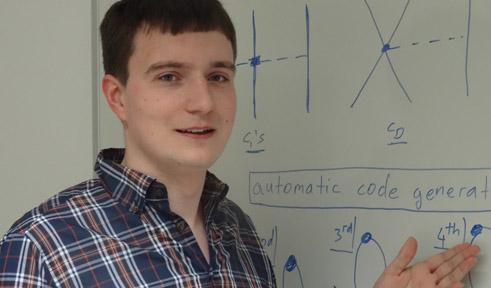 C₁'s
C_D
automatic code generat
nd 3rd 4th